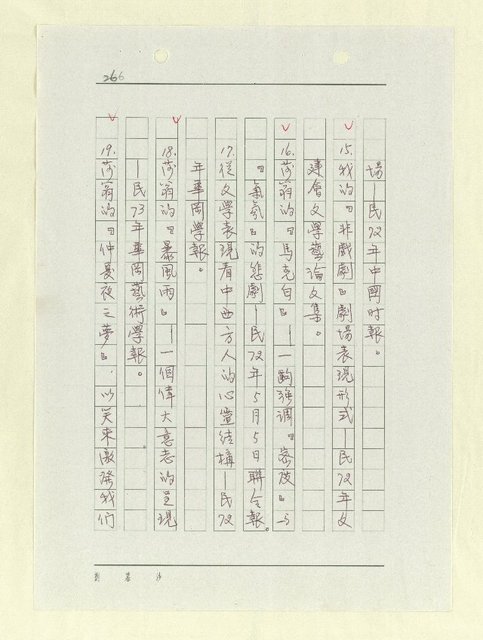 266
場—民72年中國时報。
15.我的『非戲劇』劇場表現形式—民72年文
建會文學藝論文集。
16.莎翁的『馬克白』—一齣强调『密度』与
『氣氛』的悲劇—民72年5月5日聯合報。
17.從文學表現看中西方人的心靈结構—民72
年華岡学報。
18.莎翁的『暴風雨』—一個偉大意志的呈現
—民73年華岡藝術學報。
19.莎翁的『仲夏夜之夢』,以笑来激發我们
劉慕沙